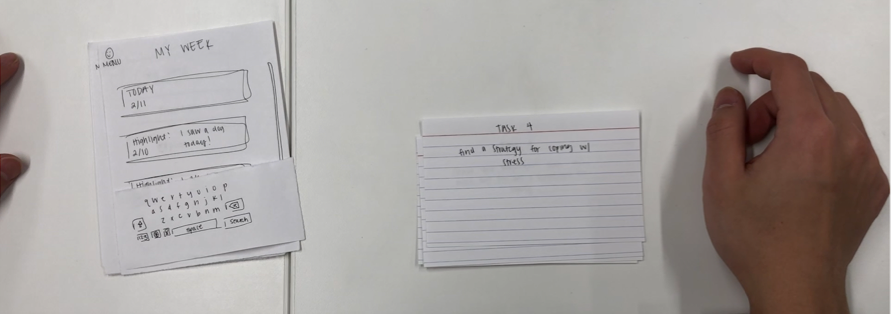 MENU
MY WEEK
TODAY
2/11
Highlight: I saw a dog
today!
2/10
Highlight:
q w e r t y u i o p
a s d f g h j k l
z x c v b n m
space
search
TASK 4
find a strategy for coping w/
stress